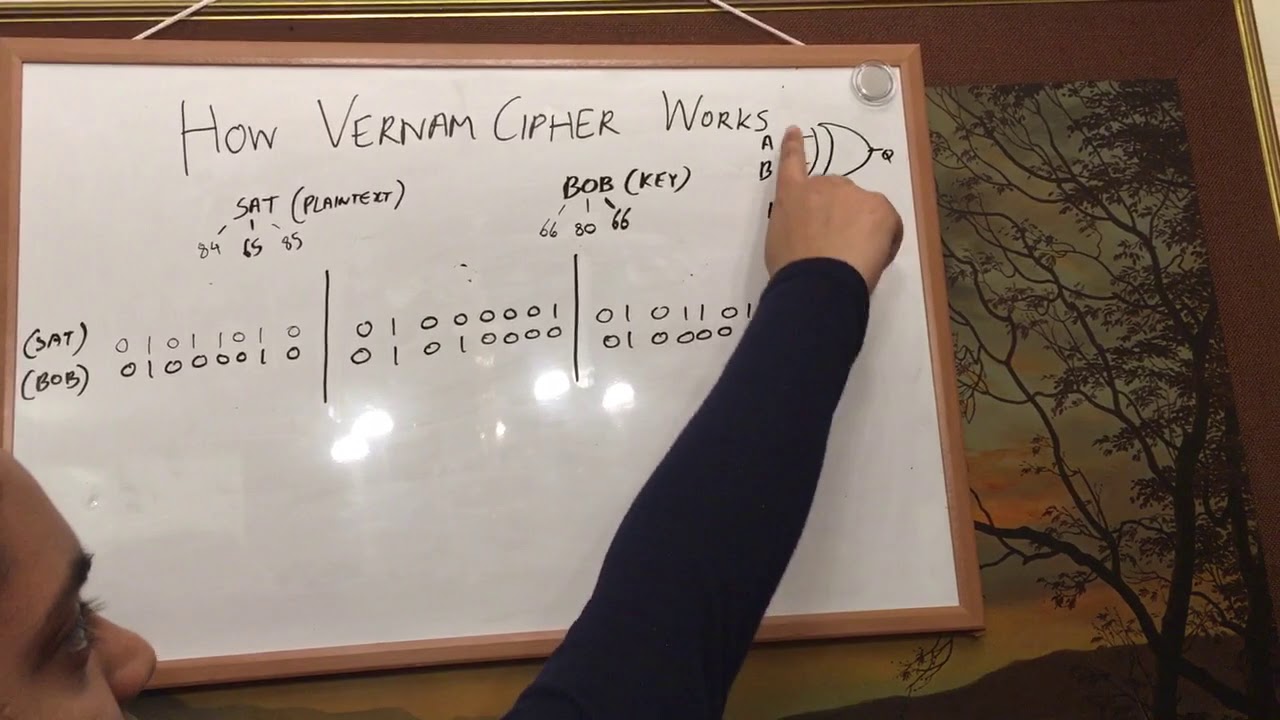 HOW VERNAM CIPHER WORKS
A
B
Q
SAT (PLAINTEXT)
84 65 85
BOB (KEY)
66 80 66
(SAT) 0 1 0 1 1 0 1 0 0 1 0 0 0 0 0 1 0 1 0 1 1 0 1
(BOB) 0 1 0 0 0 0 1 0 0 1 0 1 0 0 0 0 0 1 0 0 0 0